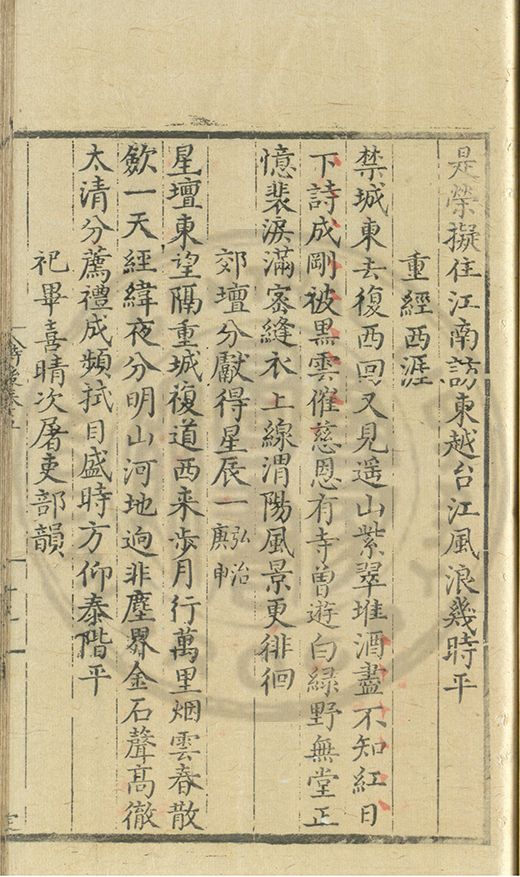 是榮擬住江南訪東越台江風浪幾時平
重經西涯
禁城東去復西回又見遥山紫翠堆酒盡不知紅日
下詩成剛被黒雲催慈恩有寺曽遊白緑野無堂正
憶裴淚滿宻縫衣上線渭陽風景更徘徊
郊壇分獻得星辰一弘治庚申
星壇東望隔重城復道西来歩月行萬里烟雲春散
歛一天經緯夜分明山河地逈非塵界金石聲高徹
太清分薦禮成頻拭目盛時方仰泰階平
祀畢喜晴次屠吏部韻